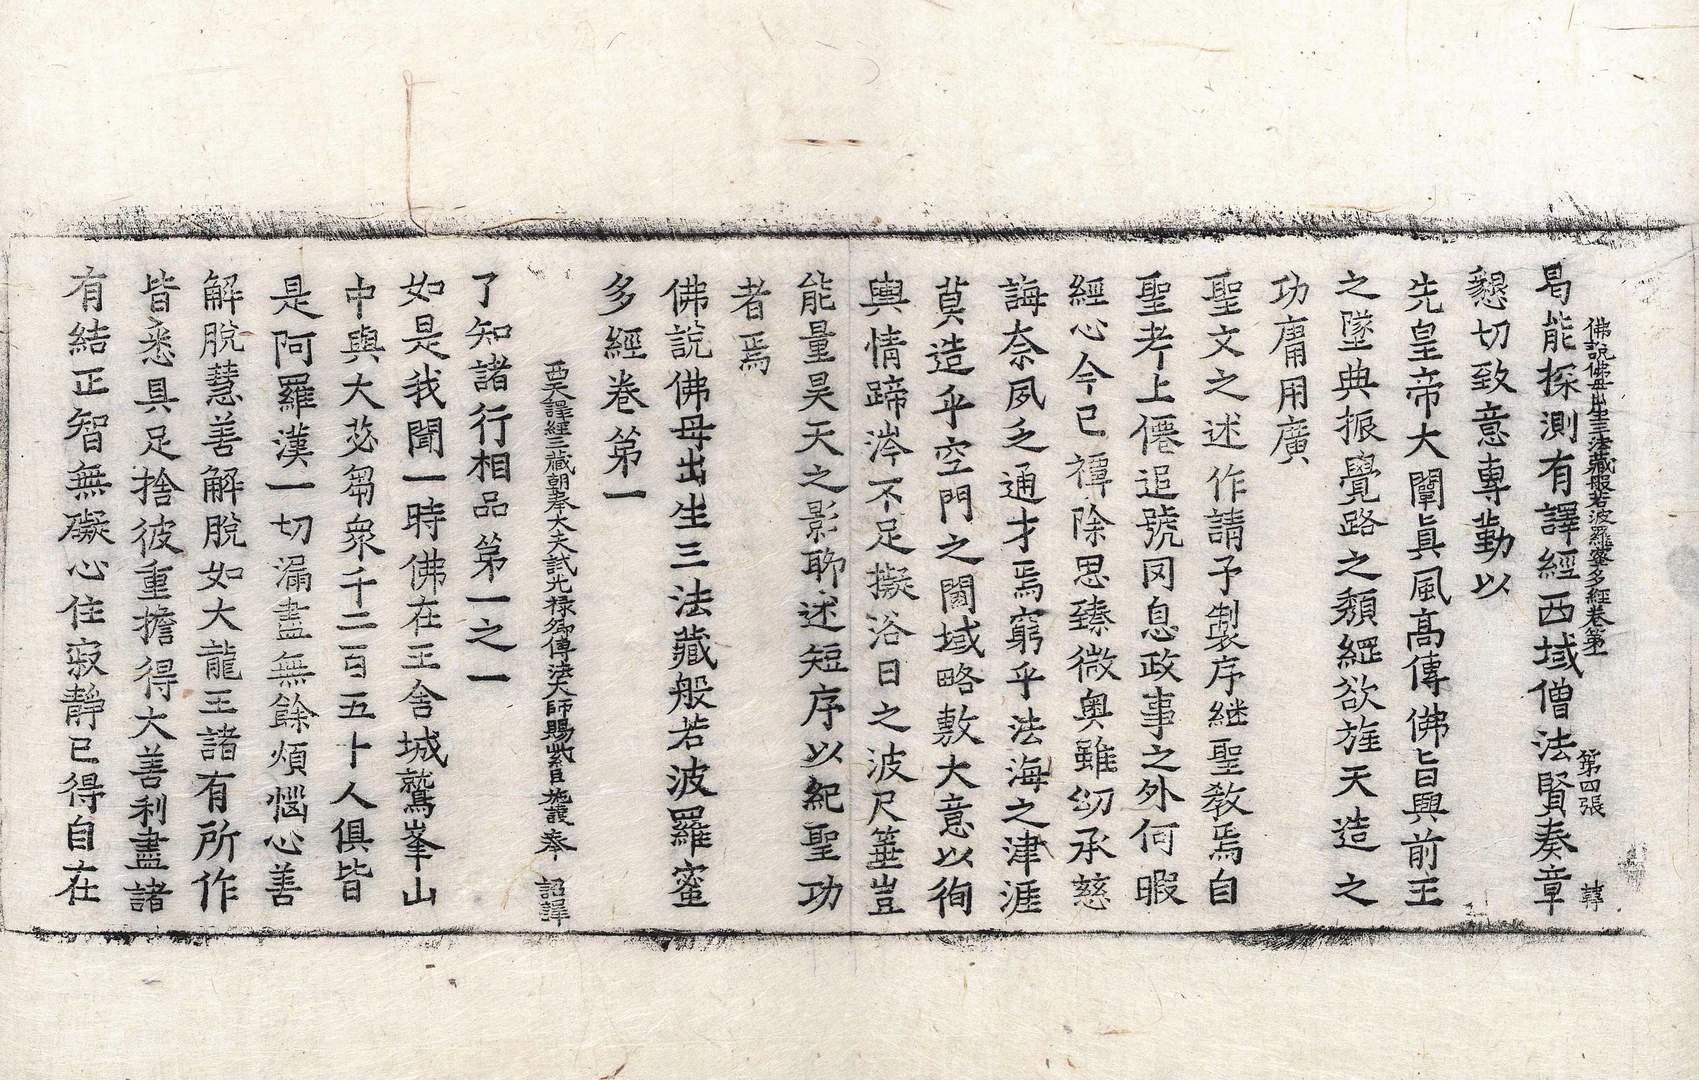 佛說佛母出生三法藏般若波羅蜜多經卷第一 第四張 諱
曷能探測有譯經西域僧法賢奏章
懇切致意專勤以
先皇帝大闡眞風高傳佛旨興前王
之墜典振覺路之頽綱欲旌天造之
功庸用廣
聖文之述作請予製序継聖敎焉自
聖考上僊追號罔息政事之外何暇
經心今已禫除思臻微奧雖幼承慈
誨奈夙乏通才焉窮乎法海之津涯
莫造乎空門之閫域略敷大意以徇
輿情蹄涔不足擬浴日之波尺箠豈
能量昊天之影聊述短序以紀聖功
者焉
佛說佛母出生三法藏般若波羅蜜
多經卷第一
西天譯經三藏朝奉大夫試光祿卿傳法大師賜紫臣施護奉 詔譯
了知諸行相品第一之一
如是我聞一時佛在王舍城鷲峯山
中與大苾芻衆千二百五十人俱皆
是阿羅漢一切漏盡無餘煩惱心善
解脫慧善解脫如大龍王諸有所作
皆悉具足捨彼重擔得大善利盡諸
有結正智無礙心住寂靜已得自在